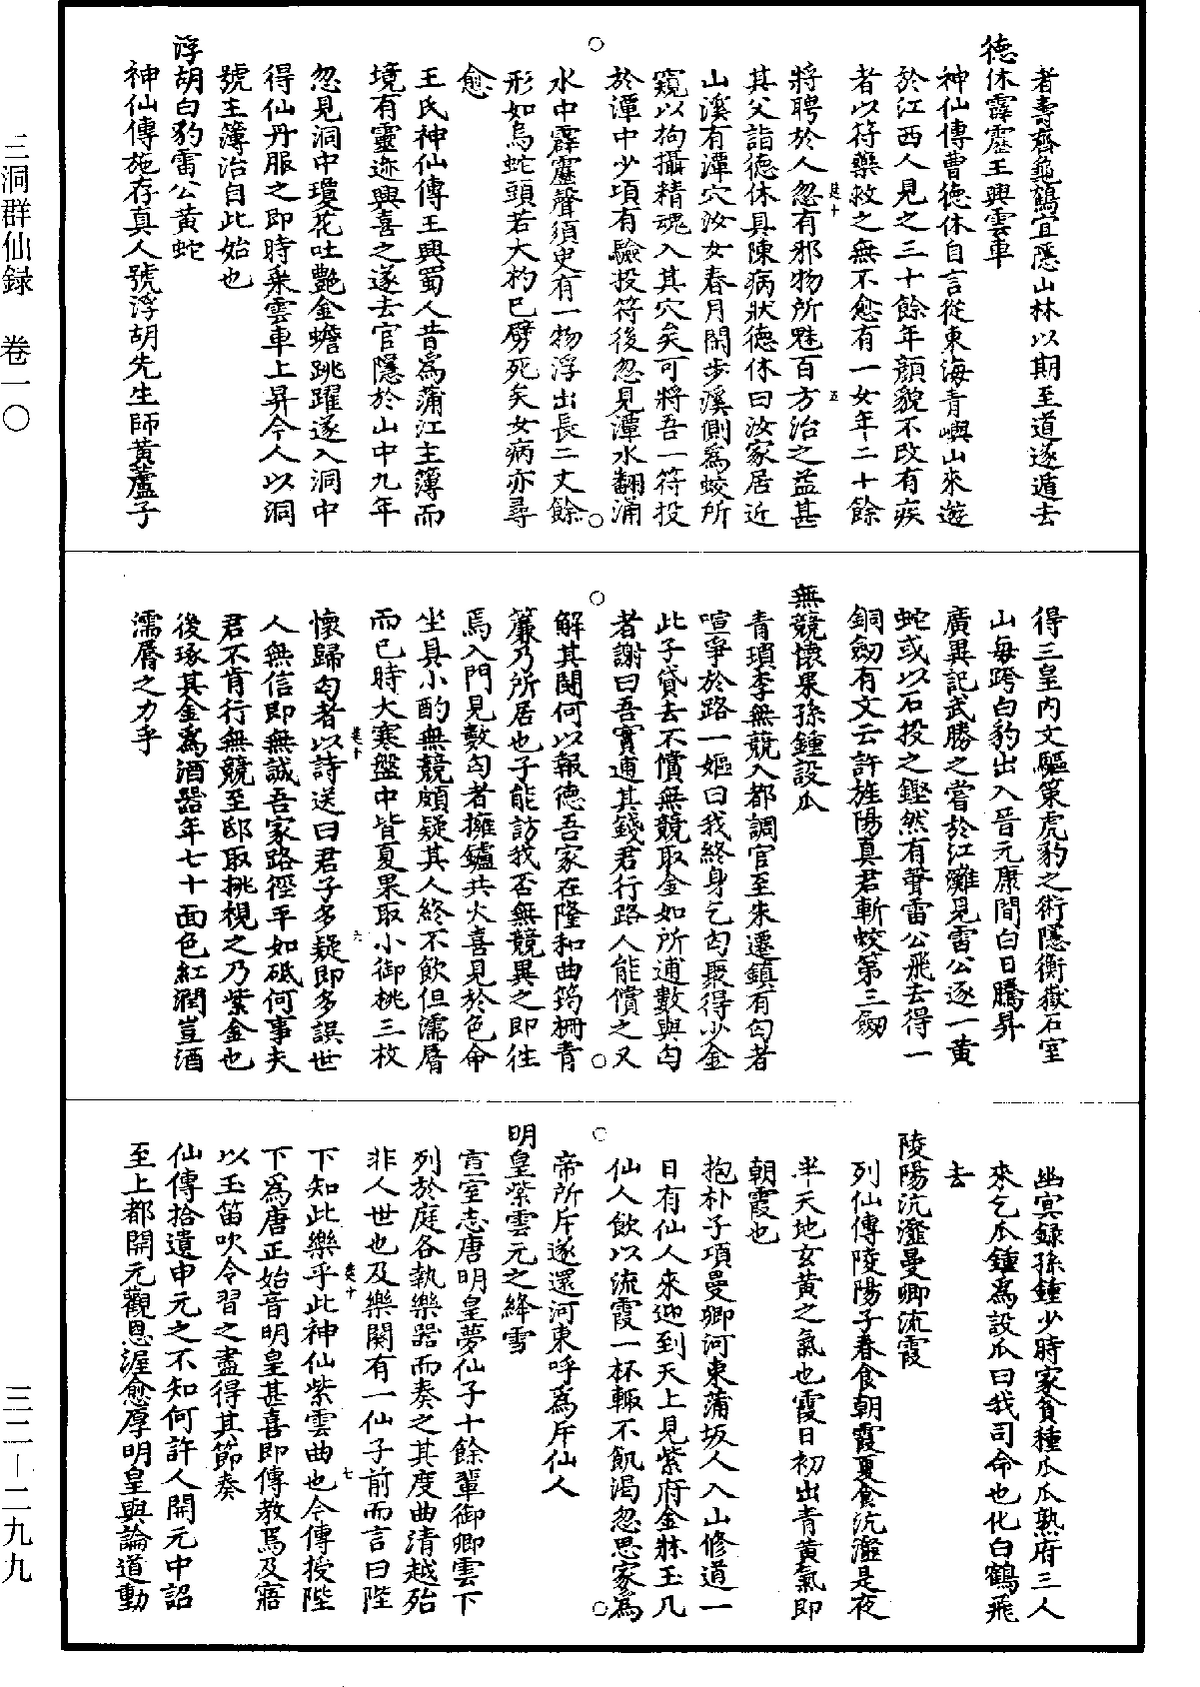 者壽齊龜鶴宜隱山林以期至道遂遁去
德休霹靂王興雲車
神仙傳曹德休自言從東海青嶼山來遊
於江西人見之三十餘年顏貌不改有疾
者以符藥救之無不愈有一女年二十餘
將聘於人忽有邪物所魅百方治之益甚
其父詣德休具陳病狀德休曰汝家居近
山溪有潭穴汝女春月閑步溪側為蛟所
窺以拘攝精魂入其穴矣可將吾一符投
於潭中少項有驗投符後忽見潭水翻湧
水中霹靂聲須臾有一物浮出長二丈餘
形如烏蛇頭若大杓已劈死矣女病亦尋
愈
王氏神仙傳王興蜀人昔為蒲江主簿而
境有靈迹興喜之遂去官隱於山中九年
忽見洞中瓊花吐艷金蟾跳躍遂入洞中
得仙丹服之即時乘雲車上昇今人以洞
號主簿治自此始也
浮胡白豹雷公黃蛇
神仙傳施存真人號浮胡先生師黃蘆子
得三皇內文驅策虎豹之術隱衡嶽石室
山每跨白豹出入晉元康間白日騰昇
廣異記武勝之嘗於江灘見雷公逐一黃
蛇或以石投之鏗然有聲雷公飛去得一
銅劒有文云許旌陽真君斬蛟第三劒
無競懷果孫鍾設瓜
青瑣李無競入都調官至朱遷鎮有匄者
喧爭於路一嫗曰我終身乞匄聚得少金
此子貸去不償無競取金如所逋數與匄
者謝曰吾實逋其錢君行路人能償之又
解其鬪何以報德吾家在隆和曲筠柵青
簾乃所居也子能訪我否無競異之即往
焉入門見數匄者擁鑪共火喜見於色命
坐具小酌無競頗疑其人終不飲但濡脣
而已時大寒盤中皆夏果取小御桃三枚
懷歸匄者以詩送曰君子多疑即多誤世
人無信即無誠吾家路徑平如砥何事夫
君不肯行無競至邸取挑視之乃紫金也
後琢其金為酒器年七十面色紅潤豈酒
濡脣之力乎
幽冥録孫鍾少時家貧種瓜瓜熟府三人
來乞瓜鍾為設瓜曰我司命也化白鶴飛
去
陵陽沆瀣曼卿流霞
列仙傳陵陽子春食朝霞夏食沆瀣是夜
半天地玄黃之氣也霞日初出青黃氣即
朝霞也
抱朴子項曼卿河東蒲坂人入山修道一
日有仙人來迎到天上見紫府金牀玉几
仙人飲以流霞一杯輙不飢渴忽思家為
帝所斥遂還河東呼為斥仙人
明皇紫雲元之絳雪
宣室志唐明皇夢仙子十餘輩御卿雲下
列於庭各執樂器而奏之其度曲清越殆
非人世也及樂闋有一仙子前而言曰陛
下知此樂乎此神仙紫雲曲也今傳授陛
下為唐正始音明皇甚喜即傳教焉及寤
以玉笛吹令習之盡得其節奏
仙傳拾遺申元之不知何許人開元中詔
至上都開元觀恩渥愈厚明皇與論道動
三洞群仙録　卷一〇
三二－二九九